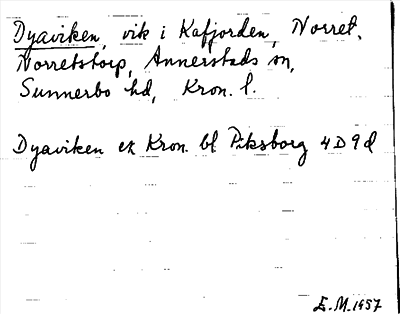 Dyaviken, vik i Kafjorden, Norret,
Norretstorp, Annerstads sn,
Sunnerbo hd, Kron. l.
Dyaviken ek Kron. bl Piksborg 4D9d
E.M. 1957